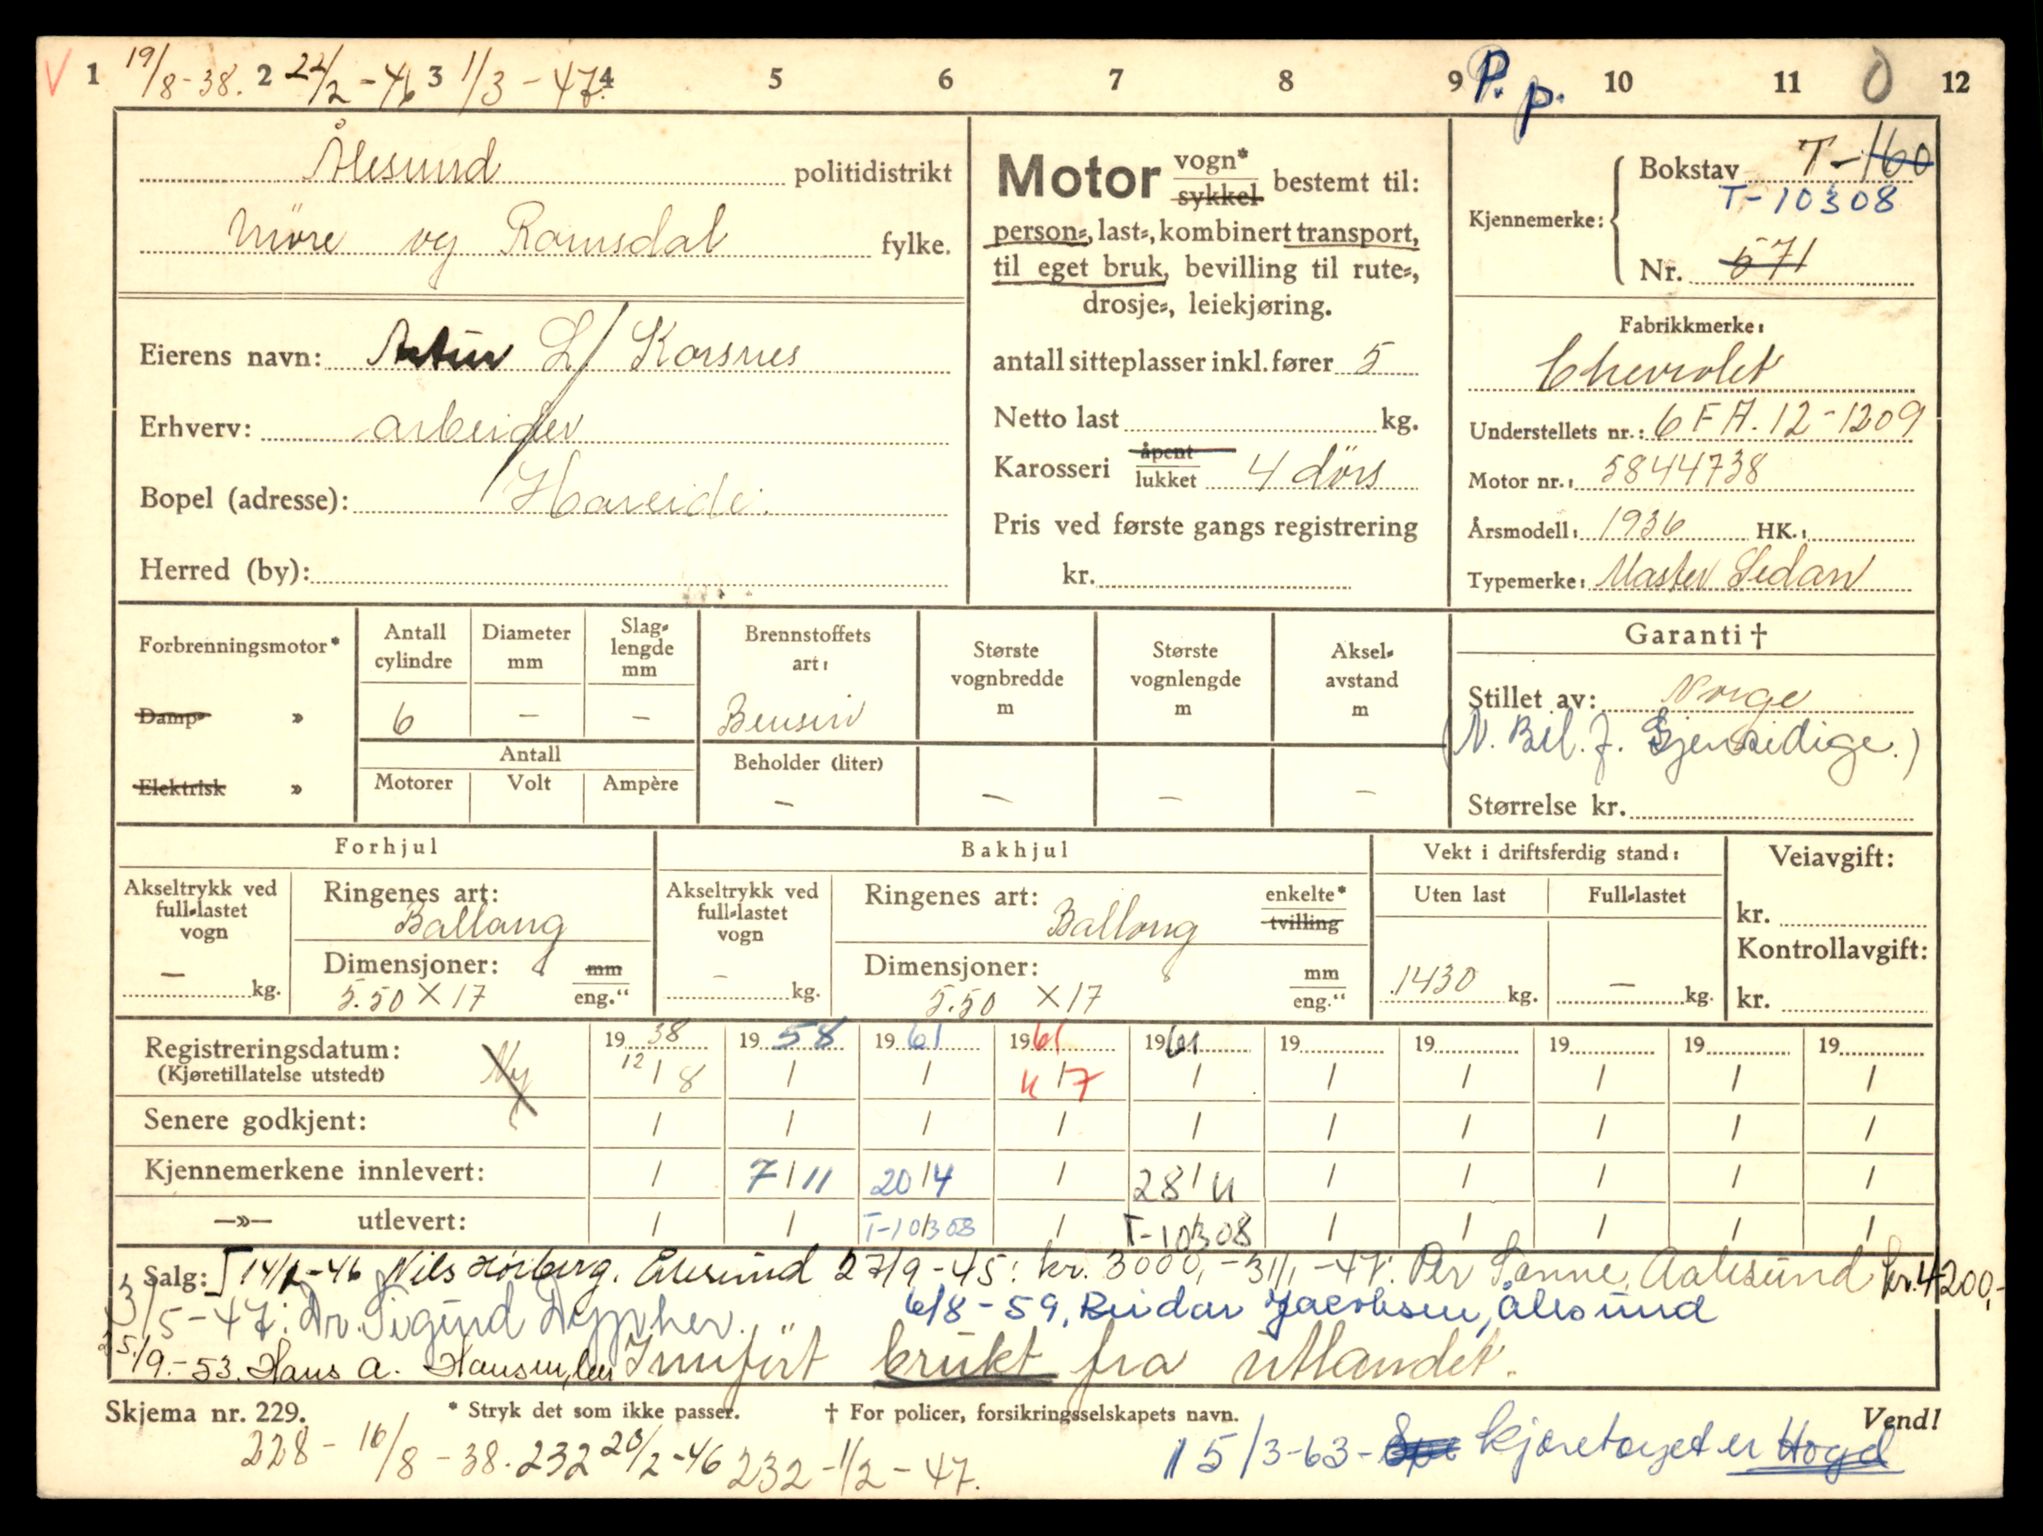 V 1 19/8-38. 2 22/2-46 3 1/3-47. 4 5 6 7 8 9 P. p. 10 11 0 12
Ålesund politidistrikt
Möre og Romsdal fylke.
Eierens navn: Artur L/ Korsnes
Erhverv: arbeider
Bopel (adresse): Hareide.
Herred (by):
Motor vogn* sykkel bestemt til:
person-, last-, kombinert transport,
til eget bruk, bevilling til rute-,
drosje-, leiekjøring.
antall sitteplasser inkl. fører 5
Netto last kg.
Karosseri åpent lukket 4 dörs
Pris ved første gangs registrering
kr.
Kjennemerke: Bokstav T-160
T-10308
Nr. 571
Fabrikkmerke:
Chevrolet
Understellets nr.: 6 FA. 12-1209
Motor nr.: 5844738
Årsmodell: 1936 HK.:
Typemerke: Master Sedan
Forbrenningsmotor*
Damp- »
Elektrisk »
Antall cylindre
6
Diameter mm
-
Slag-
lengde
mm
-
Antall
Motorer Volt Ampère
Brennstoffets
art:
Bensin
Beholder (liter)
-
Største
vognbredde
m
-
Største
vognlengde
m
-
Aksel-
avstand
m
-
Garanti †
Stillet av: Norge
(N. Bil. f. Gjensidige.)
Størrelse kr.
Forhjul
Akseltrykk ved
full-lastet
vogn
- kg.
Ringenes art:
Ballong
Dimensjoner: mm
5.50 X 17 eng."
Bakhjul
Akseltrykk ved
full-lastet
vogn
- kg.
Ringenes art: enkelte*
Ballong tvilling
Dimensjoner: mm
5.50 X 17 eng."
Vekt i driftsferdig stand:
Uten last Full-lastet
1430 kg. - kg.
Veiavgift:
kr.
Kontrollavgift:
kr.
Registreringsdatum: 1938 1958 1961 1961 1961 19 19 19 19 19
(Kjøretillatelse utstedt) Ny 12/8 / / 11/7 / / / / / /
Senere godkjent: / / / / / / / / / /
Kjennemerkene innlevert: / 7/11 20/4 / 28/11 / / / / /
—»— utlevert: / / T-10308 / T-10308 / / / / /
Salg: 14/2-46 Nils Hörberg. Ålesund 27/9-45: kr. 3000,- 31/1-47: Per Sanne, Aalesund kr. 4200,-
3/5-47: Dr. Sigurd 6/8-59, Reidar Jacobsen, Ålesund
25/9-53. Hans A. Hansen, her Innfört brukt fra utlandet.
Skjema nr. 229. * Stryk det som ikke passer. † For policer, forsikringsselskapets navn. Vend!
228 - 16/8-38. 232 20/2-46 232 - 1/2-47.
15/3-63- kjøretøyet er Hogd